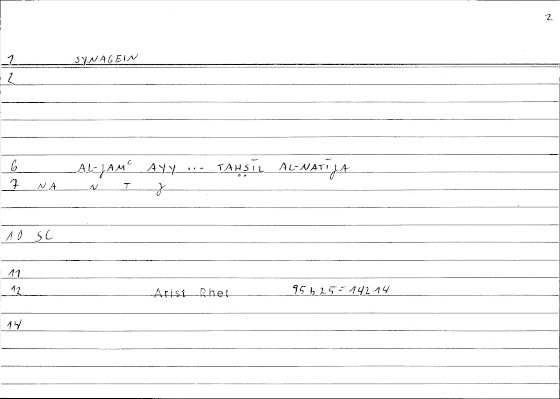 2
1 SYNAGEIN
2
6 AL-JAMʿ AYY ... TAḤṢĪL AL-NATĪJA
7 NA N T J
10 SC
11
12 Arist Rhet 95b25=14214
14